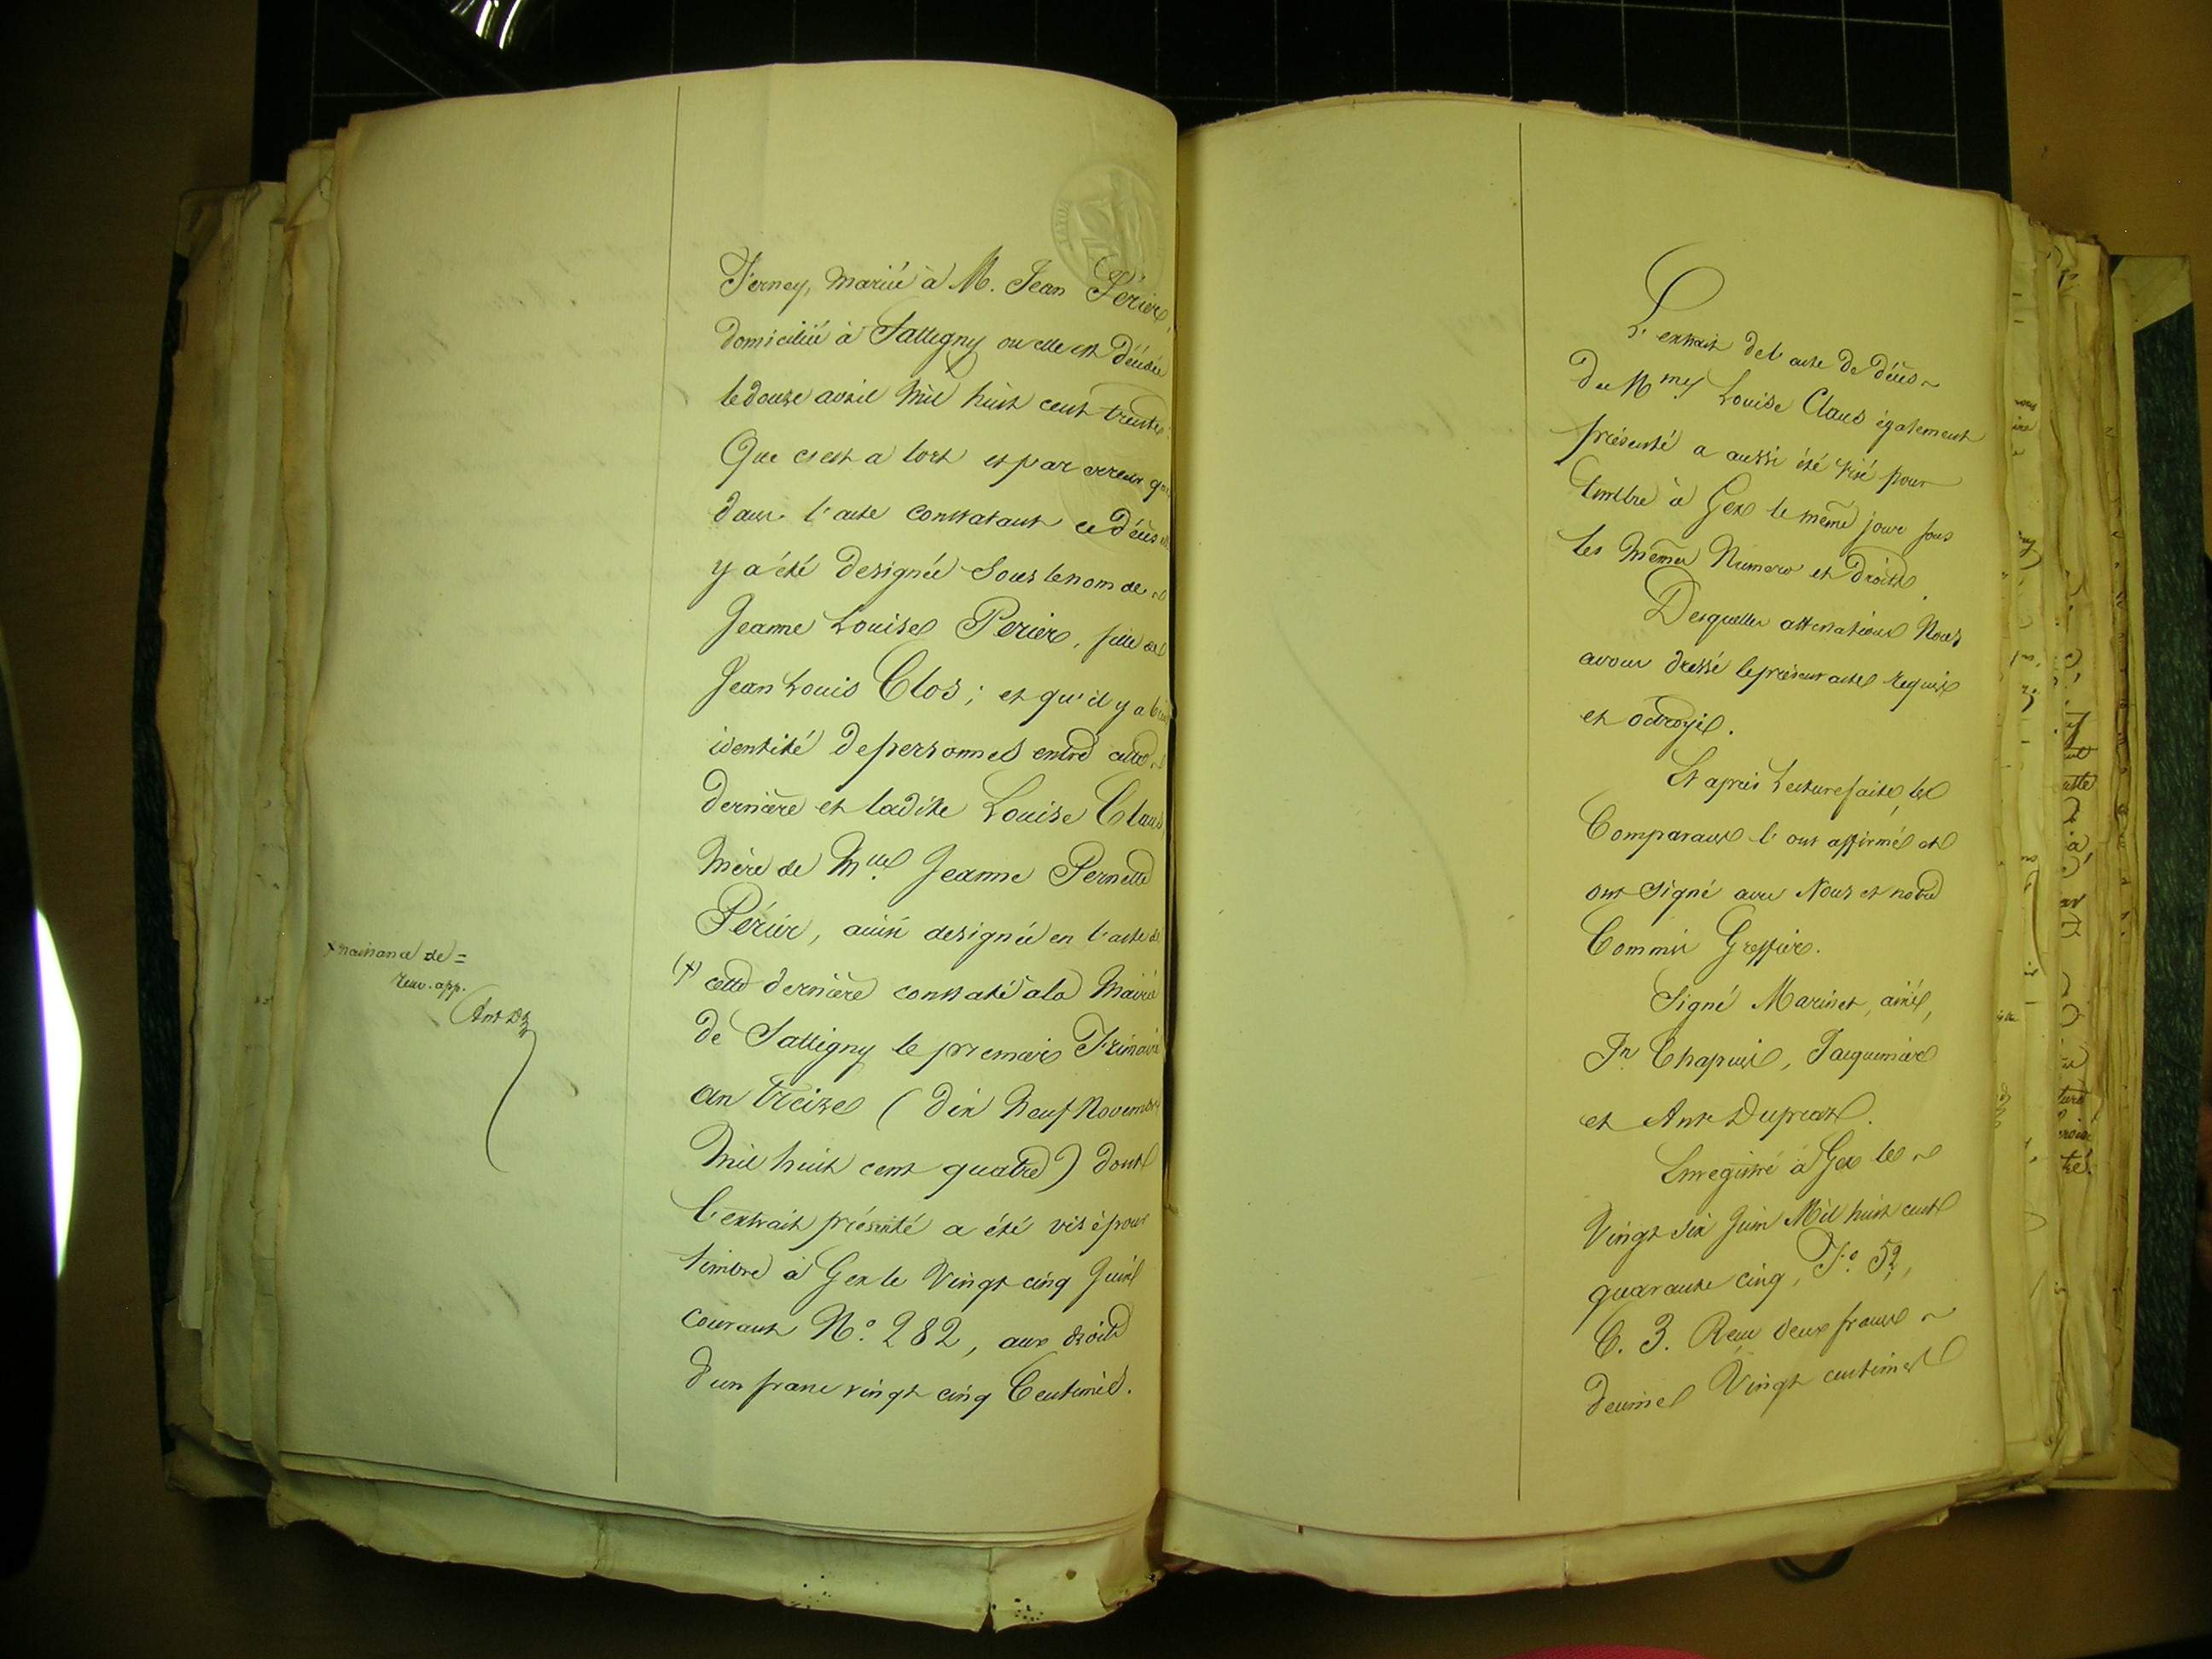 Ferney, mariée à M. Jean Périer,
domiciliée à Sattigny ou elle est décédée
le douze avril mil huit cent trente.
Que c'est a tort et par erreur que
dans l'acte constatant ce décès
y a été designée sous le nom de
Jeanne Louise Perier, fille de
Jean Louis Clos ; et qu'il y a
identité de personnes entre cette
dernière et ladite Louise Claus,
mère de Mlle Jeanne Pernette
Périer, ainsi designée en l'acte de
(+) cette dernière constaté à la Mairie
de Sattigny le premier Frimaire
an treize ( dix neuf Novembre
mil huit cent quatre ) dont
l'extrait présenté a été visé pour
timbre à Gex le vingt cinq Juin
courant N.o 282, aux droits
d'un franc vingt cinq Centimes.
+ naissance de =
renv. app.
Ant D
L'extrait de l'acte de décès
de Mme Louise Claus également
présenté a aussi été visé pour
timbre à Gex le même jour sous
les mêmes Numero et droits.
Desquelles attestations Nous
avons dressé le présent acte requis
et octroyé.
Et après lecture faite, les
Comparans l'ont affirmé et
ont signé avec Nous et notre
Commis Greffier.
Signé Marinet, ainé,
Jn Chapuis, Jacquemier
et Ant Dupraz.
Enregistré à Gex le
vingt six Juin Mil huit cent
quarante cinq, F.o 52,
C. 3. Reçu deux francs
decime vingt centimes